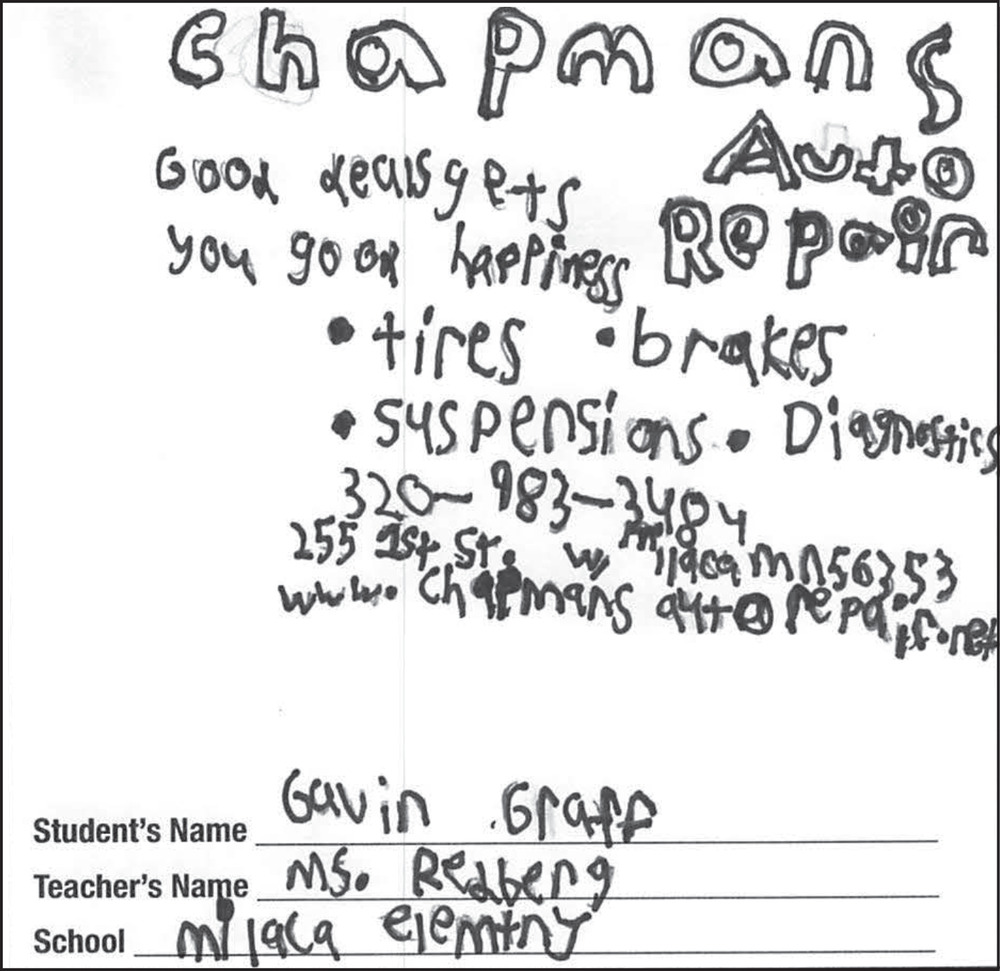 Chapmans
Auto
Repair
Good deals gets
you good happiness
• tires • brakes
• suspensions • Diagnostics
320-983-3484
255 1st St. w, milaca mn 56353
www.Chapmansautorepair.net
Student's Name Gavin Graff
Teacher's Name Ms. Redberg
School milaca elemtny